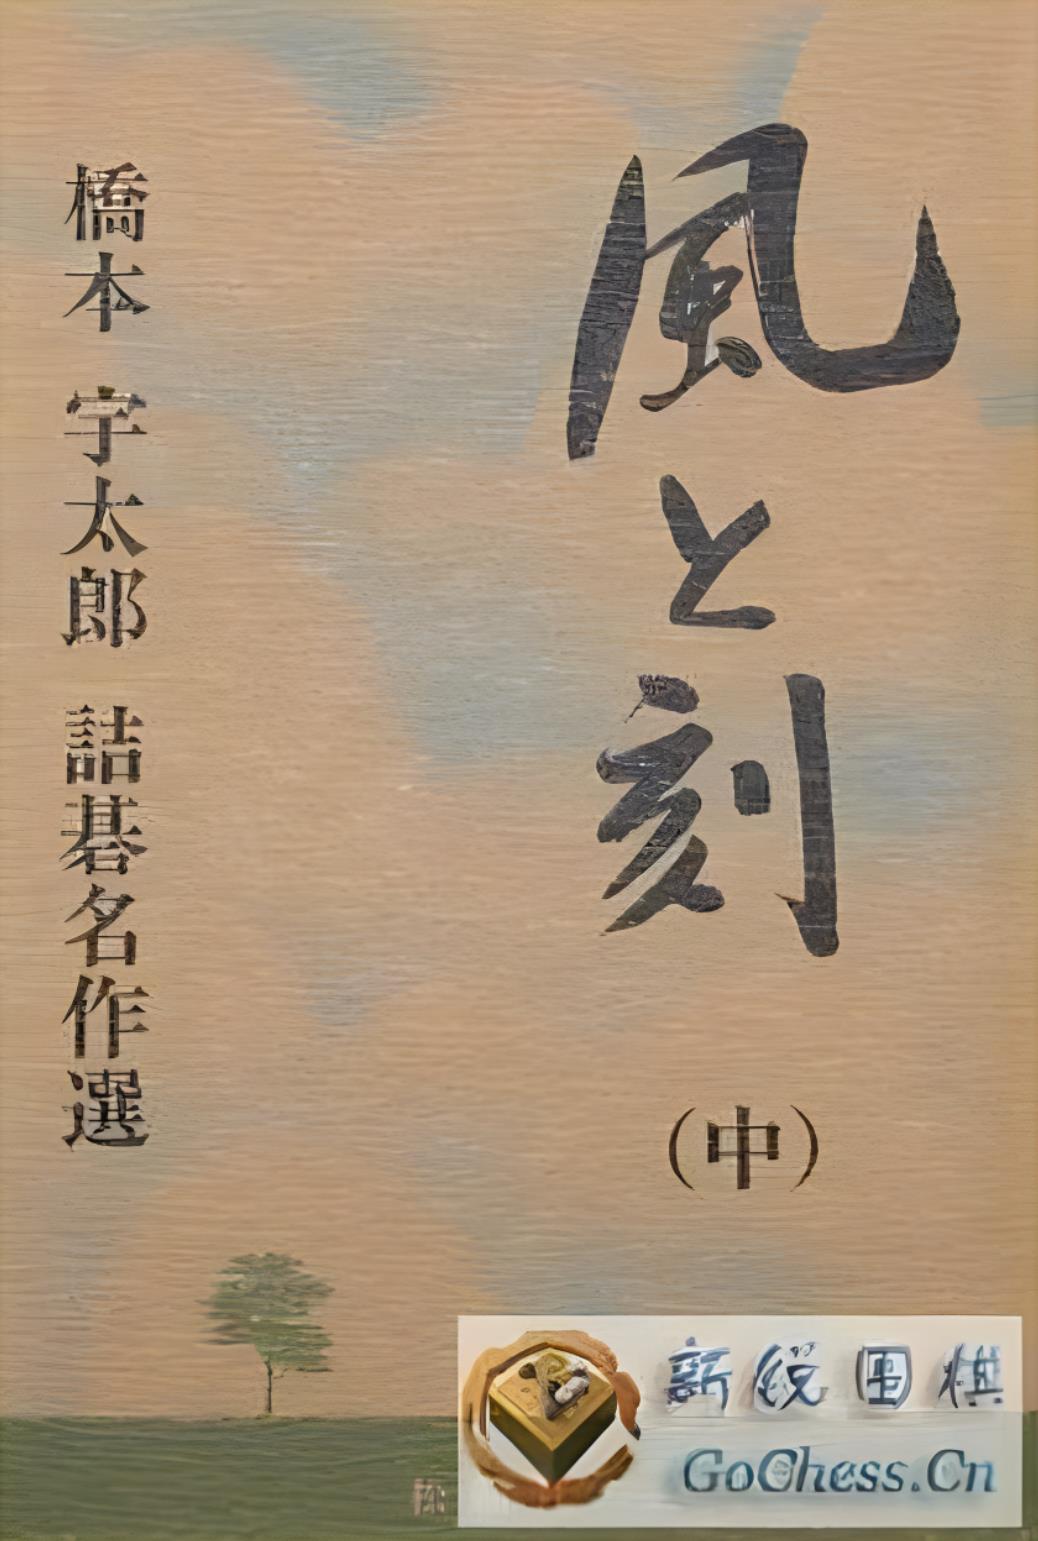 風と刻
(中)
橋本 宇太郎 詰碁名作選
新锐围棋
GoChess.Cn